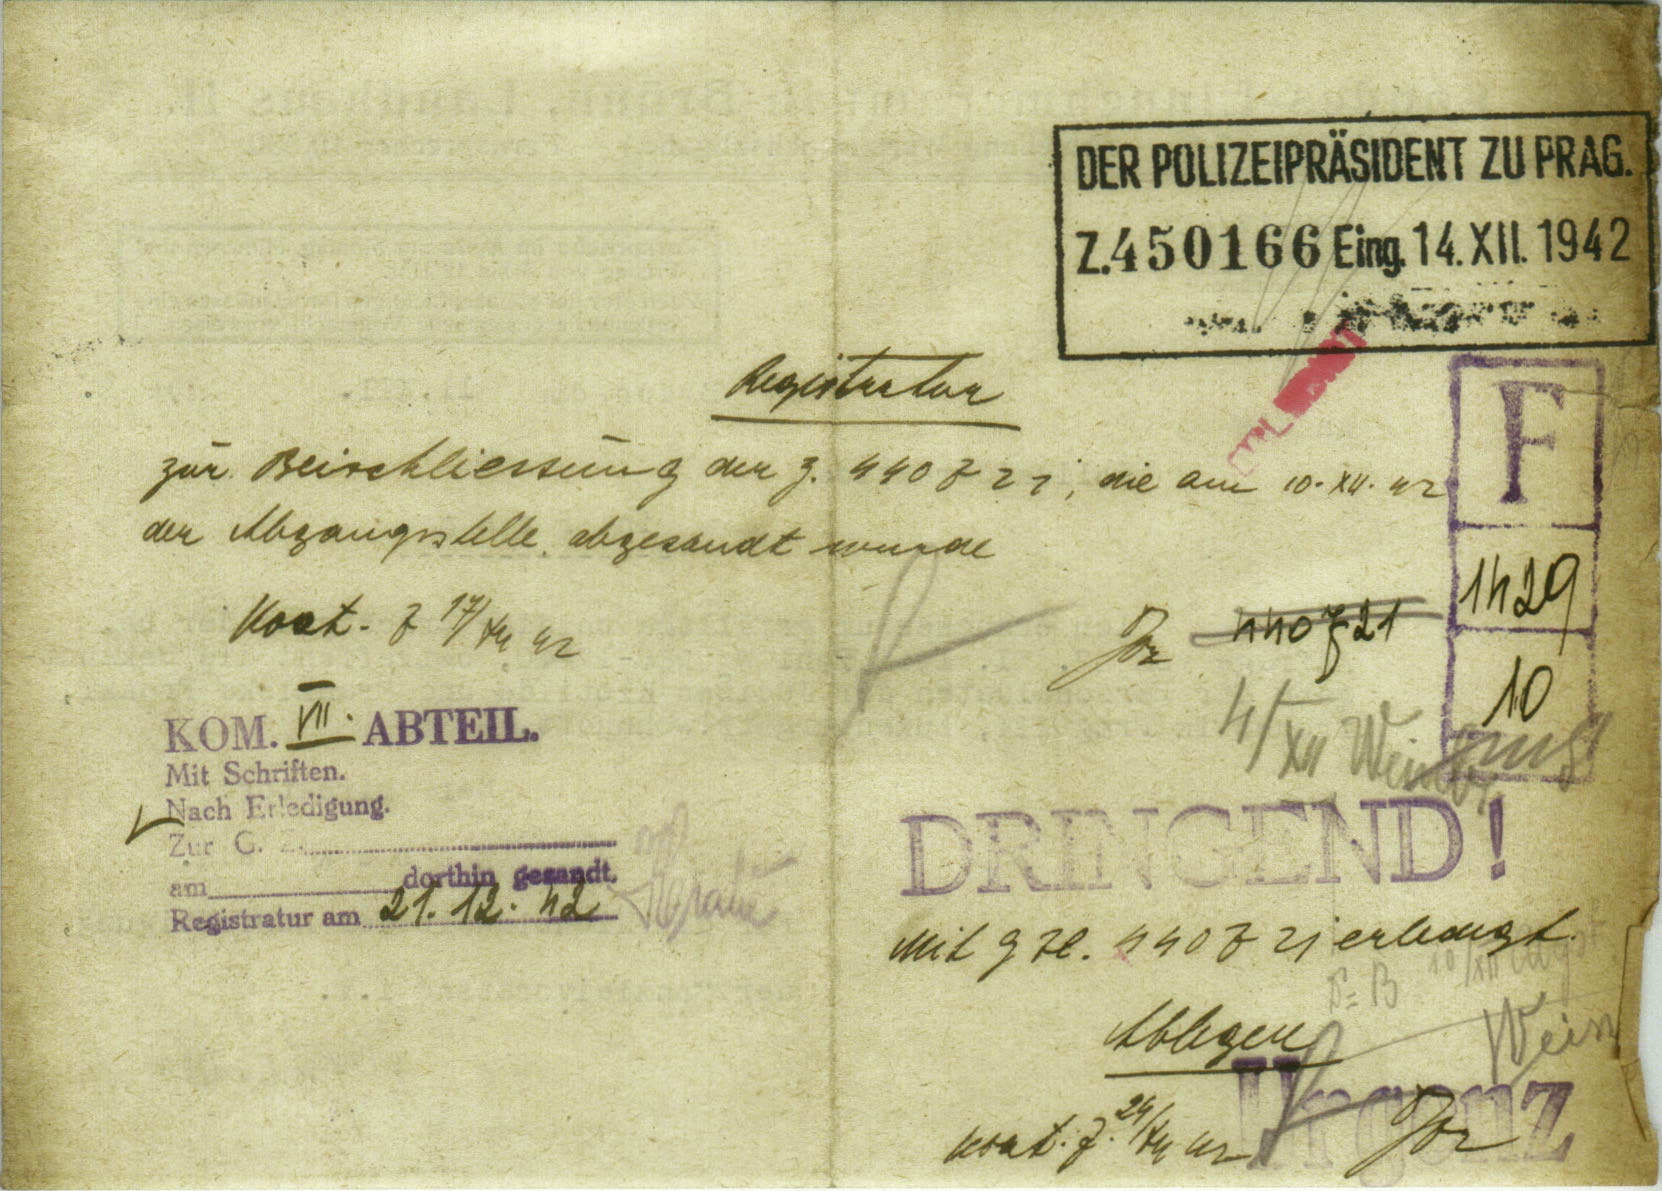 DER POLIZEIPRÄSIDENT ZU PRAG.
Z. 450166 Eing. 14. XII. 1942
Registratur
zur Beischliessung der Z. 440721, die am 10. XII. 42
der Abgangsstelle abgesandt wurde
17/XII 42
F
1429
10
440721
4/XII
KOM. VII. ABTEIL.
Mit Schriften.
Nach Erledigung.
Zur G.
am dorthin gesandt.
Registratur am 21. 12. 42
DRINGEND!
Mit g Zl. 440721 erledigt.
10/XII
Ablegen
Urgenz
24/XII 42